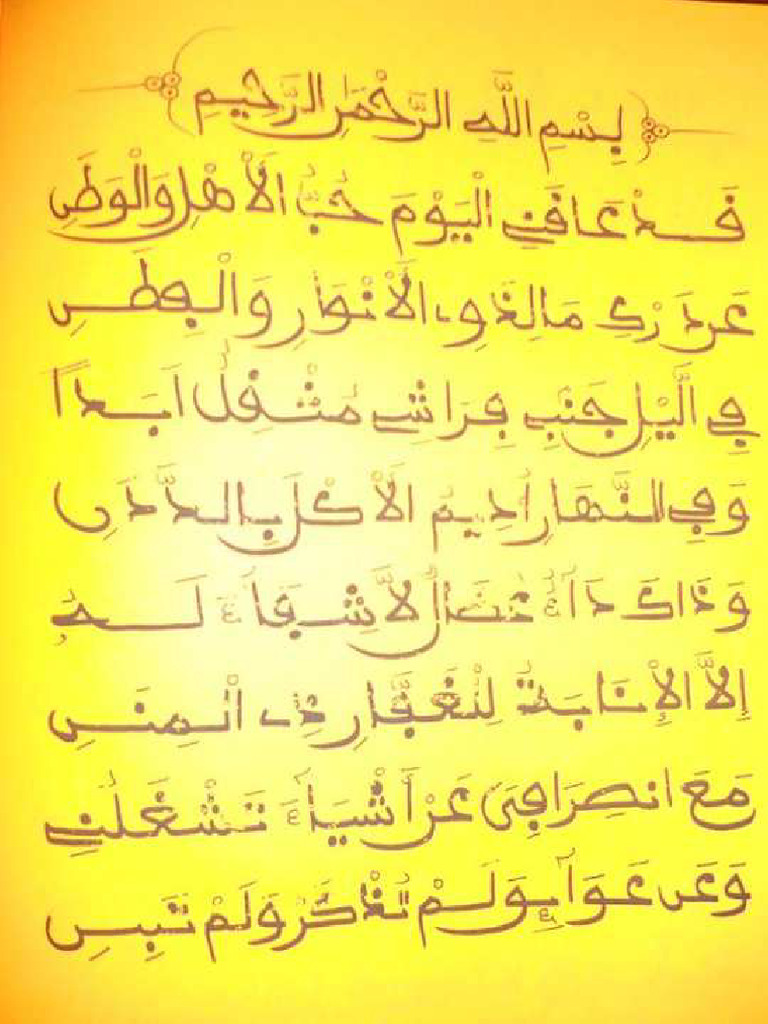 بِسْمِ اللَّهِ الرَّحْمَٰنِ الرَّحِيمِ
قَدْ عَاقَنِي الْيَوْمَ حُبُّ الْأَهْلِ وَالْوَطَنِ
عَن دَرْكِ مَا لِذَوِي الْأَنْوَارِ وَالْفِطَنِ
فِي الَّيْلِ جَنْبِي فِرَاشِي مُثْقَلٌ أَبَداً
وَفِي النَّهَارِ أُدِيمُ الْأَكْلَ بِالدَّدَنِ
وَذَاكَ دَاءٌ عُضَالٌ لَا شِفَاءَ لَهُ
إِلَّا الْإِنَابَةُ لِلْغَفَّارِ ذِي الْمِنَنِ
مَعَ انصِرَافِيَ عَنْ أَشْيَاءَ تَشْغَلُنِي
وَعَن عَوَائِقَ لَمْ تُذْكَرْ وَلَمْ تَبِنِ